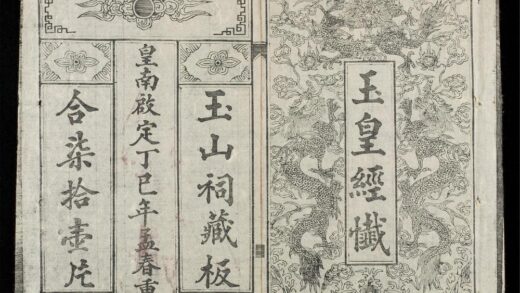 玉皇經懺
玉山祠藏板
皇南啟定丁巳年孟春重
合柒拾壹片